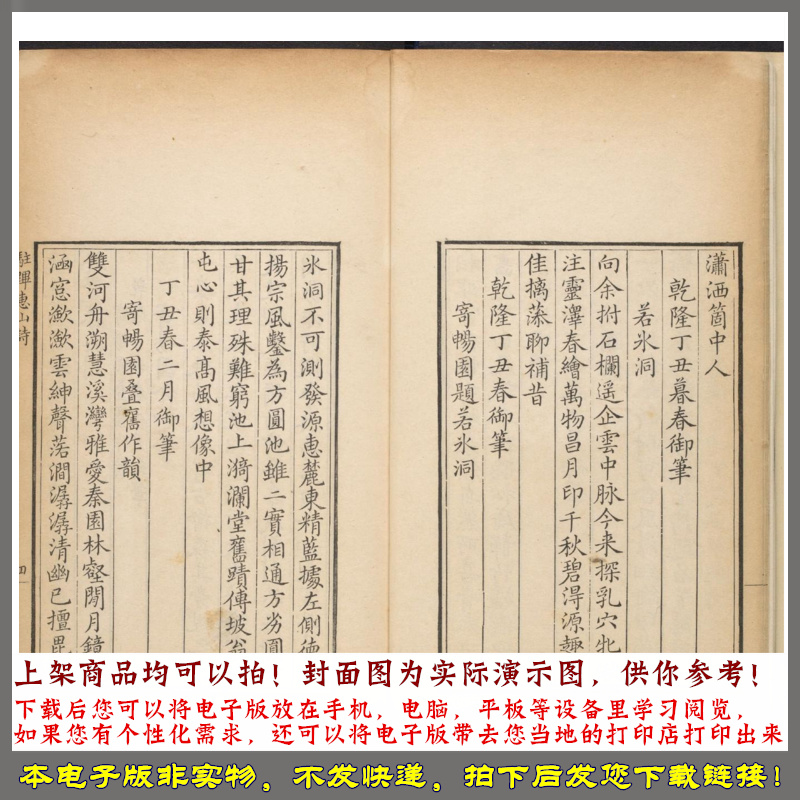 瀟洒箇中人
乾隆丁丑暮春御筆
若氷洞
向余拊石欄遥企雲中脉今来探乳穴牝
注靈澤春繪萬物昌月印千秋碧淂源趣
佳摛藻聊補昔
乾隆丁丑春御筆
寄暢園題若氷洞
氷洞不可測發源恵麓東精藍據左側徳
揚宗風鑿為方圓池雖二實相通方劣圓
甘其理殊難窮池上漪瀾堂舊蹟傳坡翁
屯心則泰髙風想像中
丁丑春二月御筆
寄暢園叠舊作韻
雙河舟溯慧溪灣雅愛秦園林壑閒月鏡
涵窓漱漱雲紳聲落澗潺潺清幽已擅毘
駐蹕恵山詩
上架商品均可以拍！封面图为实际演示图，供你参考！
下载后您可以将电子版放在手机，电脑，平板等设备里学习阅览，
如果您有个性化需求，还可以将电子版带去您当地的打印店打印出来
本电子版非实物，不发快递，拍下后发您下载链接！